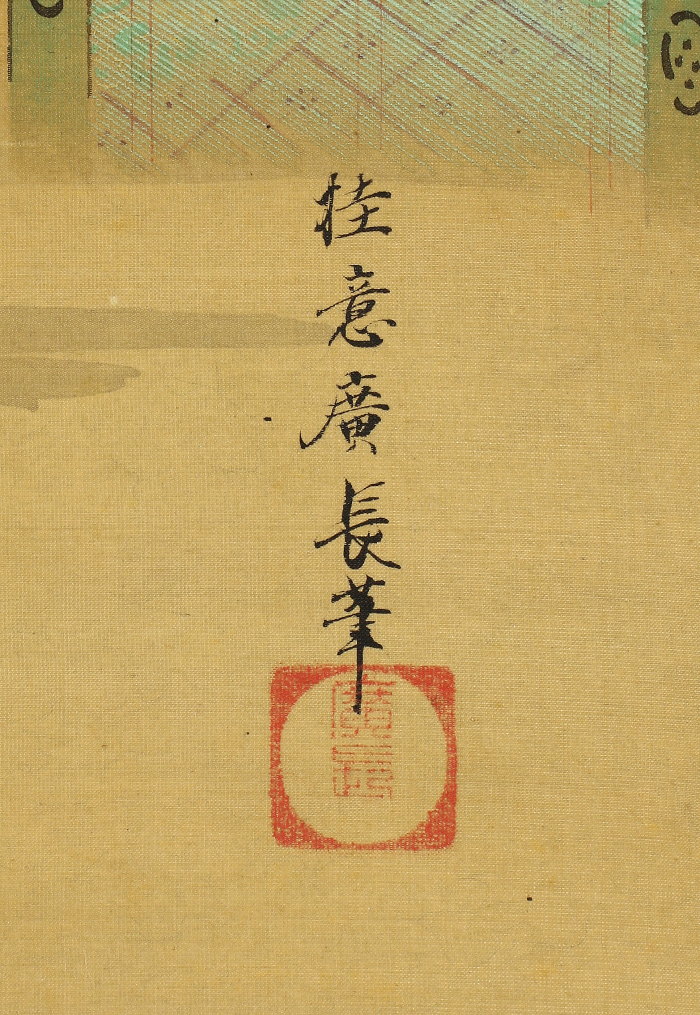 桂意廣長筆
廣長